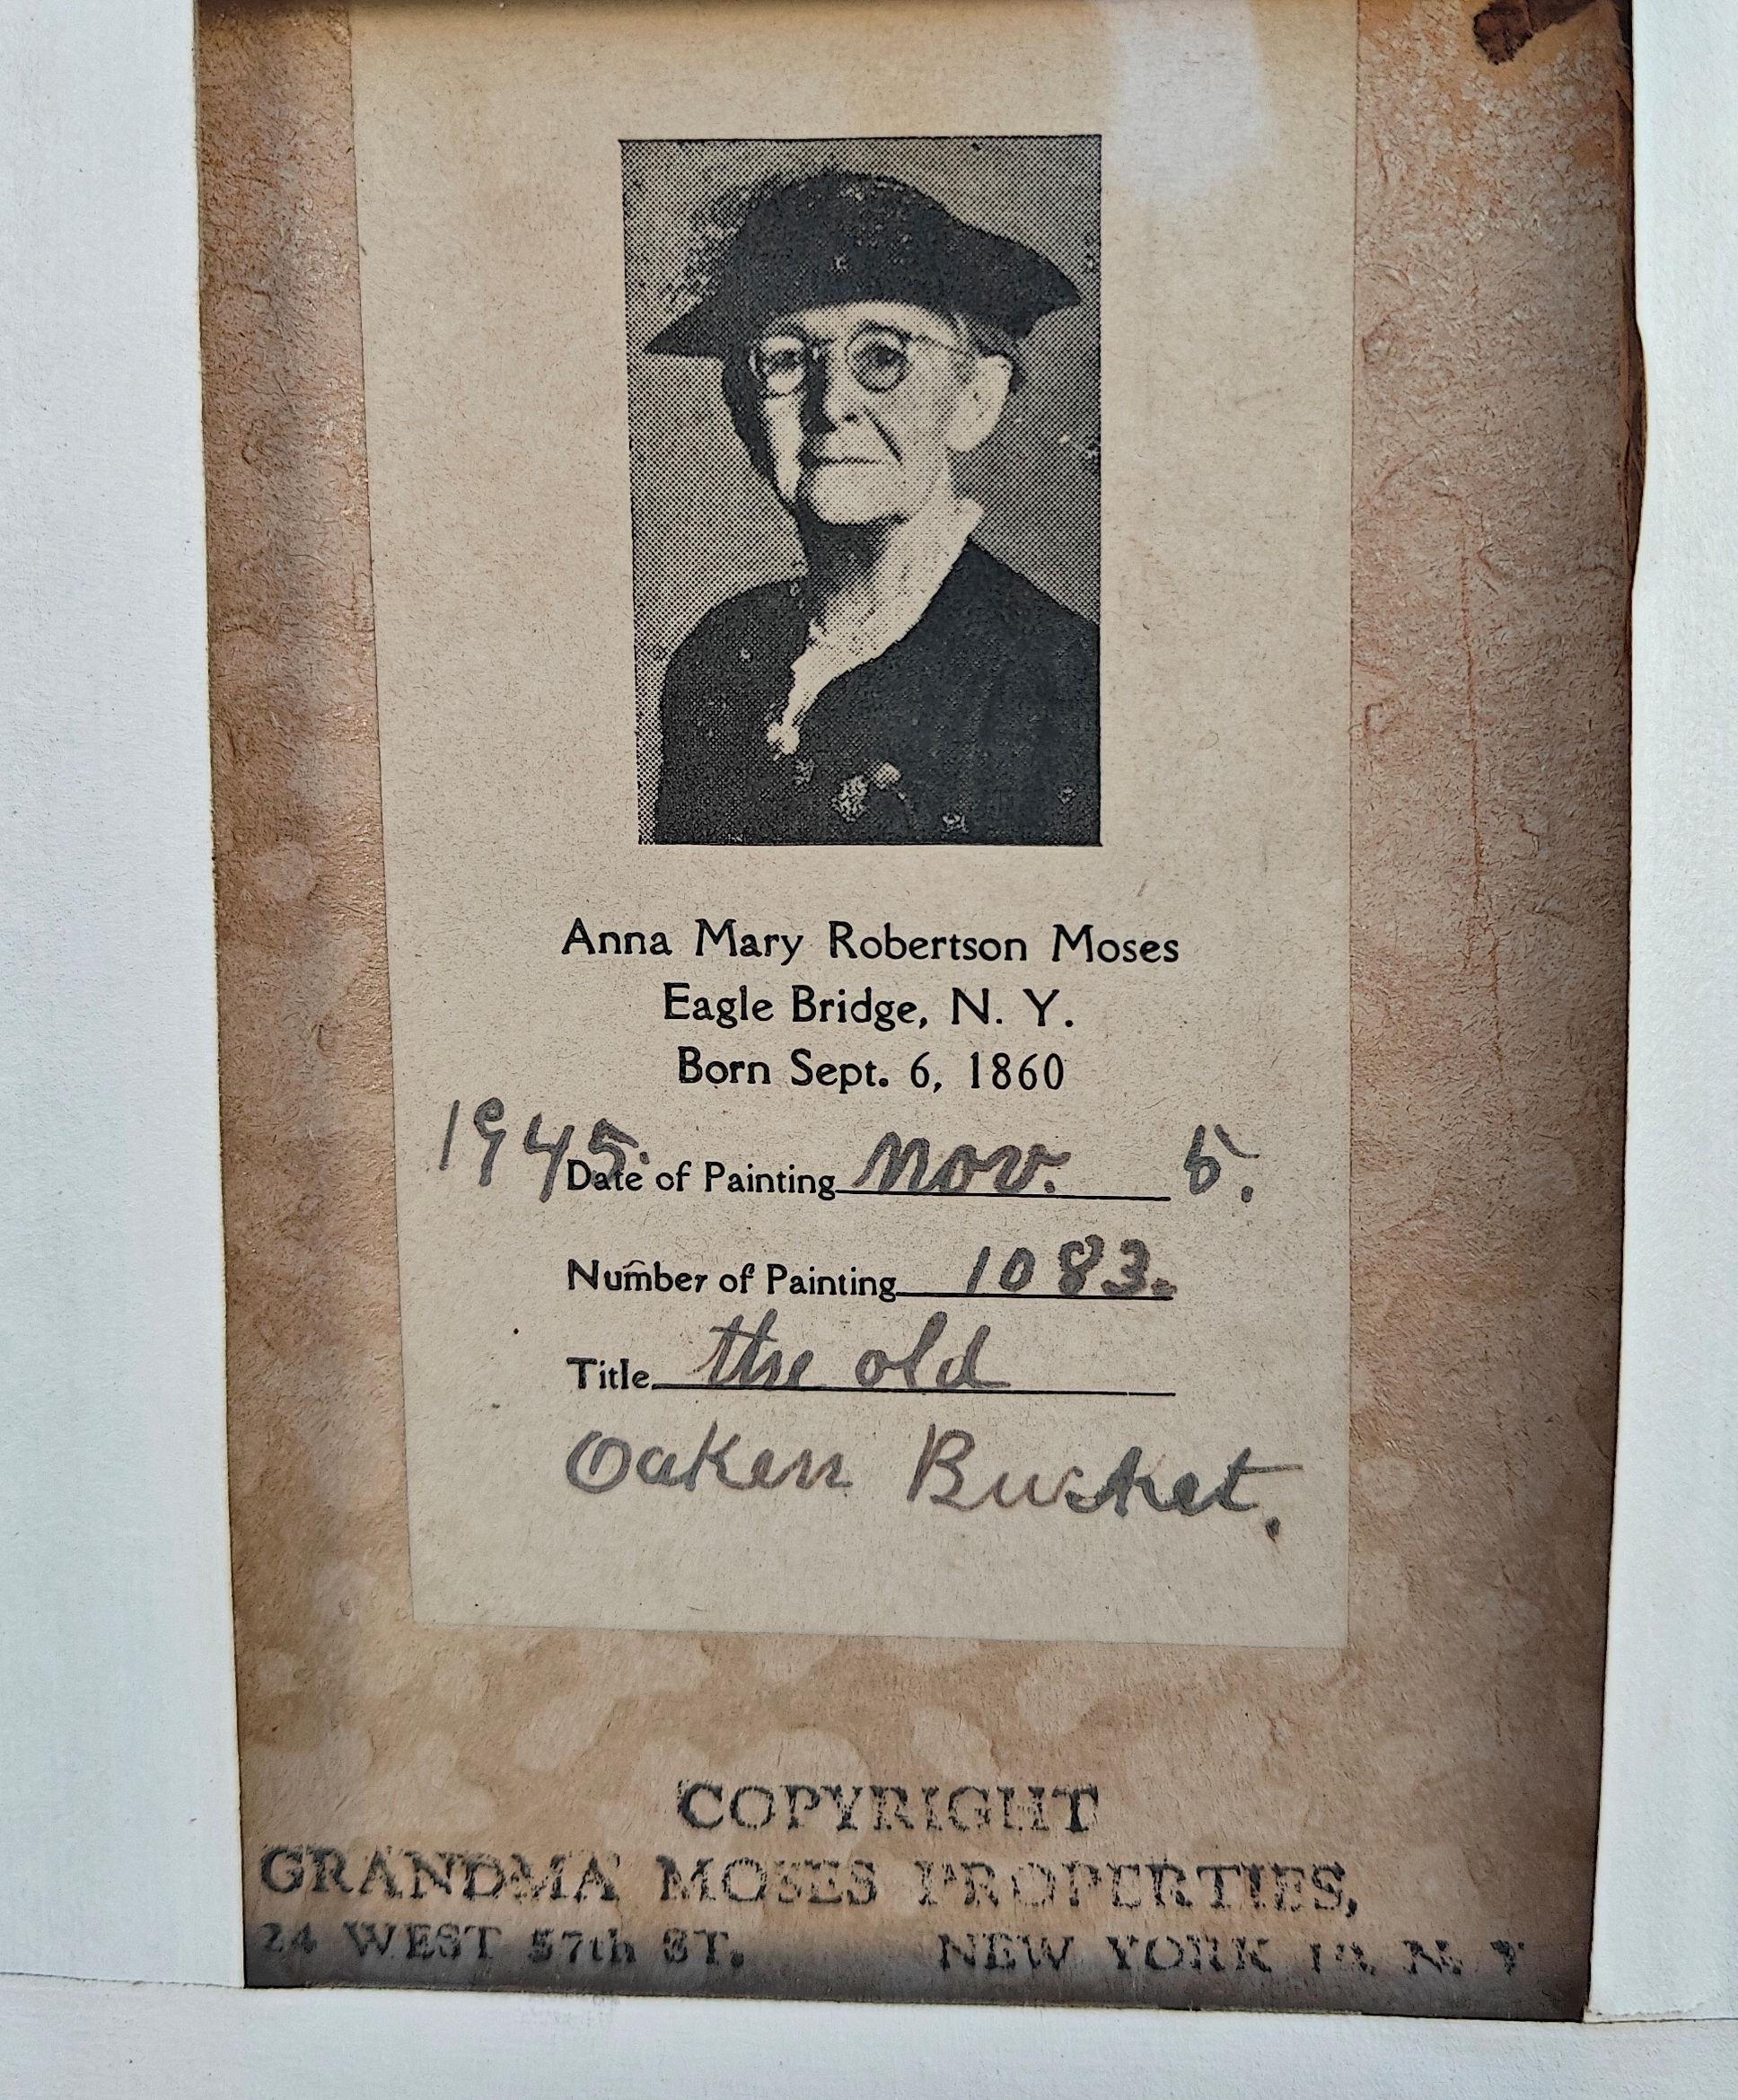 Anna Mary Robertson Moses
Eagle Bridge, N. Y.
Born Sept. 6, 1860
1945. Date of Painting Nov. 5.
Number of Painting 1083.
Title the old
Oaken Bucket.
COPYRIGHT
GRANDMA MOSES PROPERTIES,
24 WEST 57th ST. NEW YORK 19, N. Y